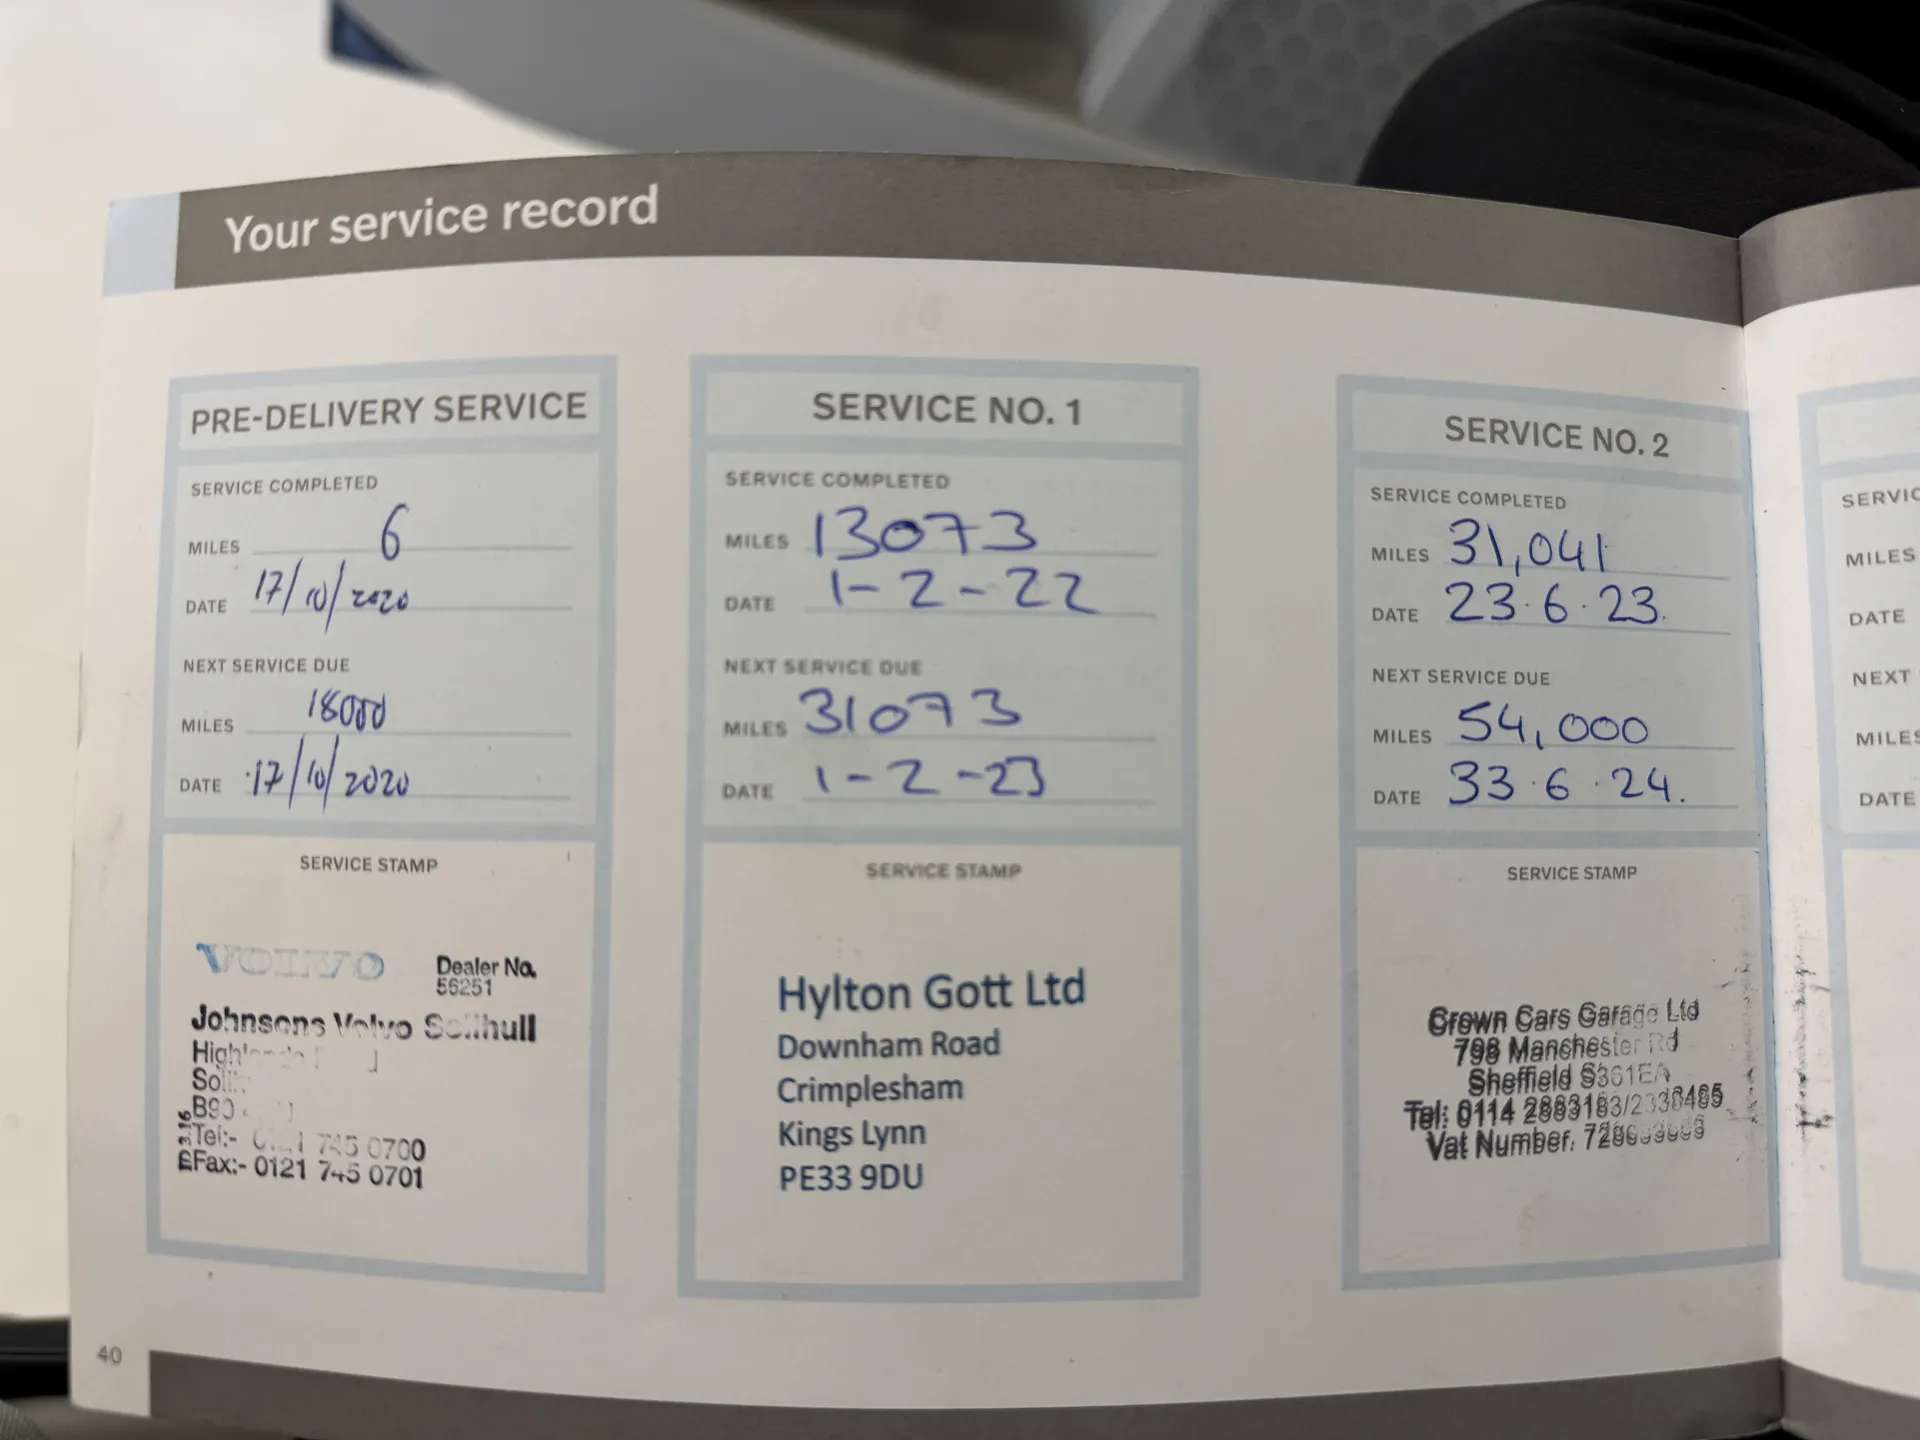 Your service record
PRE-DELIVERY SERVICE
SERVICE COMPLETED
MILES 6
DATE 17/10/2020
NEXT SERVICE DUE
MILES 18000
DATE 17/10/2020
SERVICE STAMP
VOLVO
Dealer No.
56251
Johnsons Volvo Solihull
Tel:- 0121 745 0700
Fax:- 0121 745 0701
SERVICE NO. 1
SERVICE COMPLETED
MILES 13073
DATE 1-2-22
NEXT SERVICE DUE
MILES 31073
DATE 1-2-23
SERVICE STAMP
Hylton Gott Ltd
Downham Road
Crimplesham
Kings Lynn
PE33 9DU
SERVICE NO. 2
SERVICE COMPLETED
MILES 31,041
DATE 23.6.23.
NEXT SERVICE DUE
MILES 54,000
DATE 33.6.24.
SERVICE STAMP
Crown Cars Garage Ltd
798 Manchester Rd
Sheffield S361EA
Tel: 0114
Vat Number.
MILES
DATE
NEXT
MILES
DATE
40